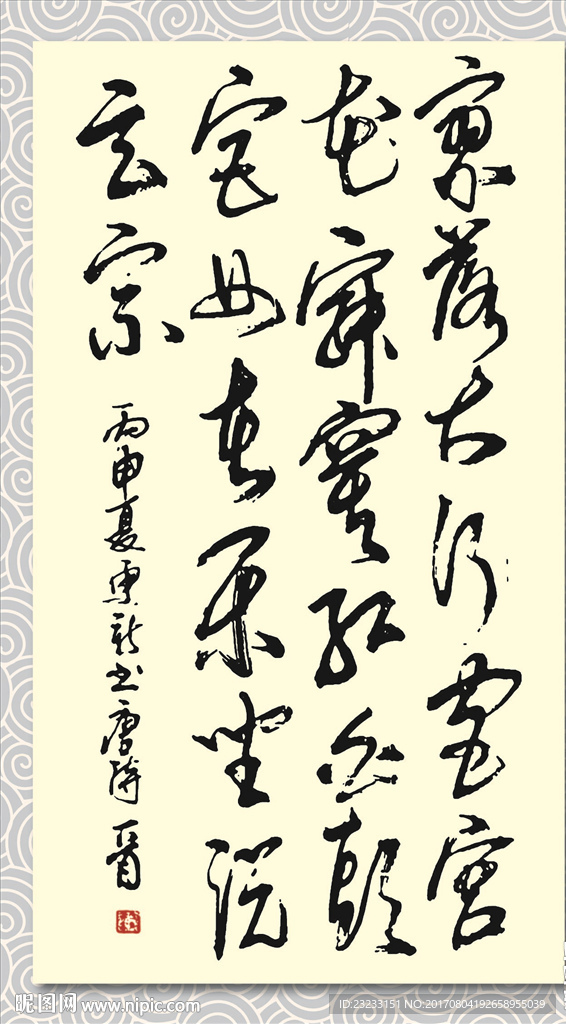 寥落古行宫宫
花寂寞红白头
宫女在闲坐说
玄宗
丙申夏新书唐诗一首
昵图网 www.nipic.com
ID:23233151 NO:20170804192658955039